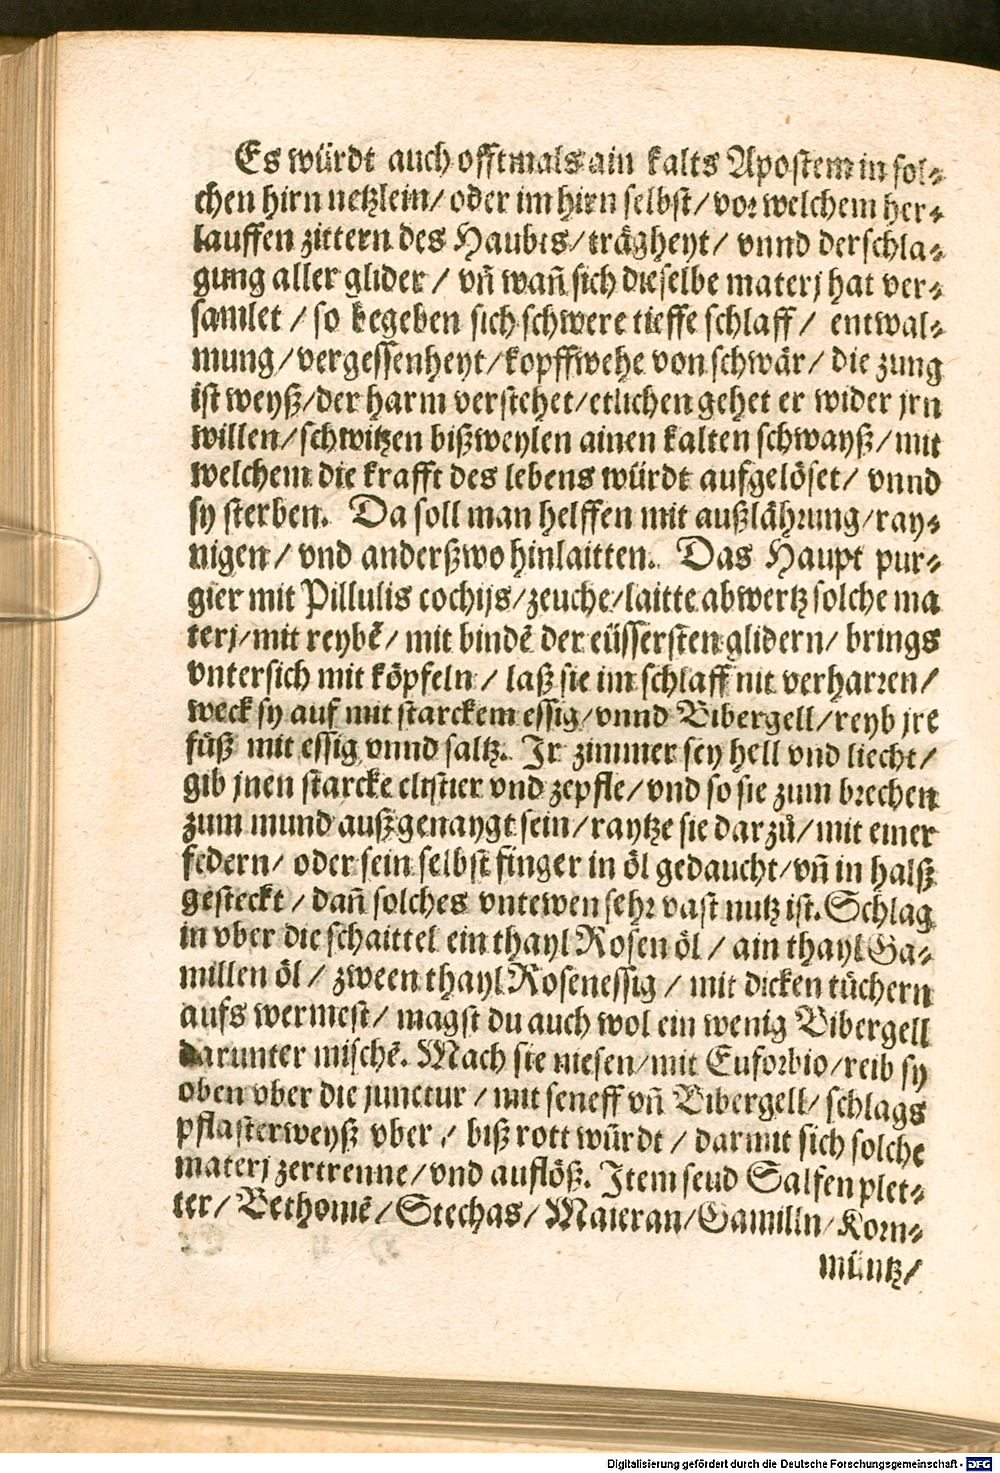 Es würdt auch offtmals ain kalts Apostem in sol⸗
chen hirn netzlein/ oder im hirn selbst/ vor welchem her⸗
lauffen zittern des Haubts/ trägheyt/ vnnd derschla⸗
gung aller glider / vñ wañ sich dieselbe materj hat ver⸗
samlet / so begeben sich schwere tieffe schlaff / entwal⸗
mung/ vergessenheyt/ kopffwehe von schwär/ die zung
ist weyß/ der harm verstehet/ etlichen gehet er wider jrn
willen/ schwitzen bißweylen ainen kalten schwayß/ mit
welchem die krafft des lebens würdt aufgelöset/ vnnd
sy sterben. Da soll man helffen mit außlährung/ ray⸗
nigen / vnd anderßwo hinlaitten. Das Haupt pur⸗
gier mit Pillulis cochijs/ zeuche/ laitte abwertz solche ma
terj/ mit reybẽ/ mit bindẽ der eüssersten glidern/ brings
vntersich mit köpfeln / laß sie im schlaff nit verharren/
weck sy auf mit starckem essig/ vnnd Bibergell/ reyb jre
füß mit essig vnnd saltz. Jr zimmer sey hell vnd liecht/
gib jnen starcke clistier vnd zepfle/ vnd so sie zum brechen
zum mund auß genaygt sein/ raytze sie darzů/ mit einer
federn/ oder sein selbst finger in öl gedaucht/ vñ in halß
gesteckt / dañ solches vntewen sehr vast nutz ist. Schlag
in vber die schaittel ein thayl Rosen öl / ain thayl Ga⸗
millen öl / zween thayl Rosenessig / mit dicken tüchern
aufs wermest/ magst du auch wol ein wenig Bibergell
darunter mischẽ. Mach sie niesen/ mit Euforbio/ reib sy
oben vber die junctur / mit seneff vñ Bibergell/ schlags
pflasterweyß vber / biß rott würdt / darmit sich solche
materj zertrenne/ vnd auflöß. Item seud Salfen plet⸗
ter/ Bethoniẽ/ Stechas/ Maieran/ Gamilln/ Korn⸗
müntz/
Digitalisierung gefördert durch die Deutsche Forschungsgemeinschaft - DFG